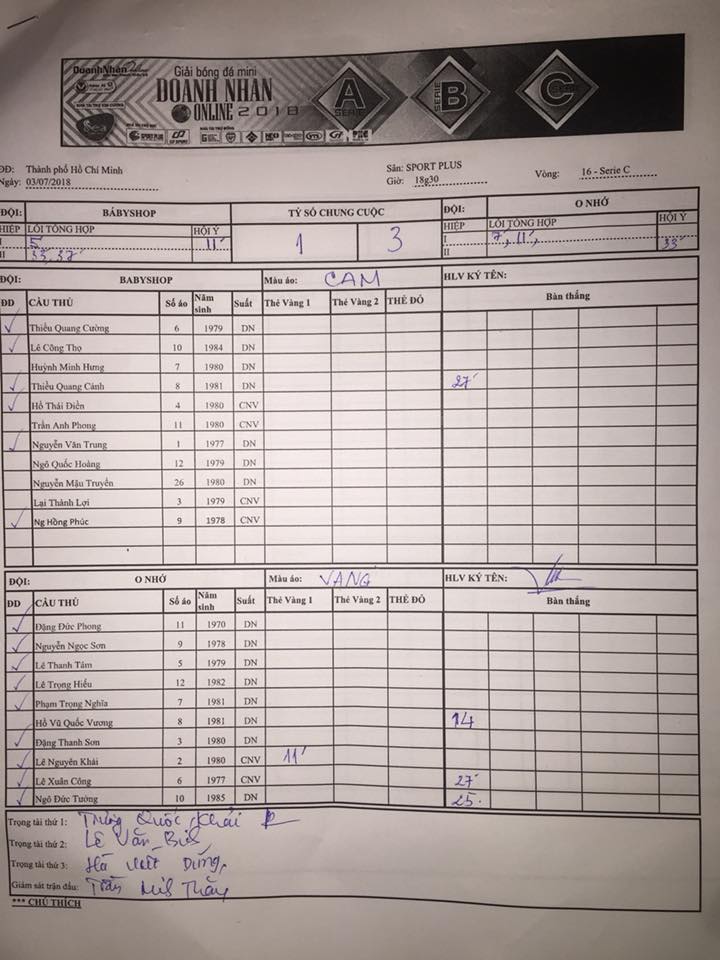 DoanhNhân
Giải bóng đá mini
DOANH NHÂN
ONLINE 2018
SERIE A
SERIE B
SERIE C
ĐĐ: Thành phố Hồ Chí Minh Sân: SPORT PLUS
Ngày: 03/07/2018 Giờ: 18g30 Vòng: 16 - Serie C
ĐỘI: BABYSHOP TỶ SỐ CHUNG CUỘC ĐỘI: O NHỚ
HIỆP LỖI TỔNG HỢP HỘI Ý 1 3 HIỆP LỖI TỔNG HỢP HỘI Ý
I 5' 11' I 7', 11',
II 33, 37' II 33'
ĐỘI: BABYSHOP Màu áo: CAM HLV KÝ TÊN:
ĐD CẦU THỦ Số áo Năm sinh Suất Thẻ Vàng 1 Thẻ Vàng 2 THẺ ĐỎ Bàn thắng
✓ Thiều Quang Cường 6 1979 DN
✓ Lê Công Thọ 10 1984 DN
Huỳnh Minh Hưng 7 1980 DN
✓ Thiều Quang Cảnh 8 1981 DN 27'
✓ Hồ Thái Điền 4 1980 CNV
Trần Anh Phong 11 1980 CNV
✓ Nguyễn Văn Trung 1 1977 DN
Ngô Quốc Hoàng 12 1979 DN
Nguyễn Mậu Truyền 26 1980 DN
Lại Thành Lợi 3 1979 CNV
✓ Ng Hồng Phúc 9 1978 CNV
ĐỘI: O NHỚ Màu áo: VÀNG HLV KÝ TÊN:
ĐD CẦU THỦ Số áo Năm sinh Suất Thẻ Vàng 1 Thẻ Vàng 2 THẺ ĐỎ Bàn thắng
✓ Đặng Đức Phong 11 1970 DN
✓ Nguyễn Ngọc Sơn 9 1978 DN
✓ Lê Thanh Tâm 5 1979 DN
✓ Lê Trọng Hiếu 12 1982 DN
✓ Phạm Trọng Nghĩa 7 1981 DN
Hồ Vũ Quốc Vương 8 1981 DN 14
✓ Đặng Thanh Sơn 3 1980 DN
✓ Lê Nguyên Khái 2 1980 CNV 11'
✓ Lê Xuân Công 6 1977 CNV 27'
✓ Ngô Đức Tường 10 1985 DN 25.
Trọng tài thứ 1: Quốc Khải
Trọng tài thứ 2: Lê Văn
Trọng tài thứ 3: Hà Dũng,
Giám sát trận đấu: Trần
*** CHÚ THÍCH